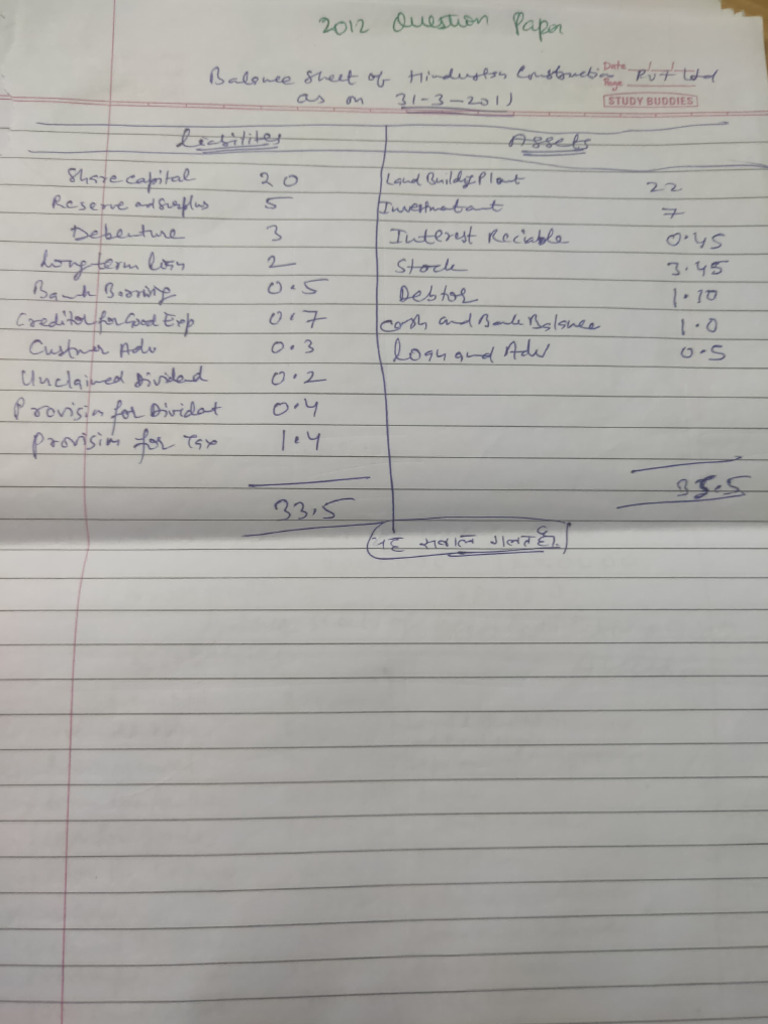 2012 Question Paper
Balance Sheet of Hindustan Construction Pvt Ltd
Date
Page
as on 31-3-2011
STUDY BUDDIES
Leasilites Assets
Share capital 20 Land Buildg Plant 22
Reserve and Surplus 5 7
Debenture 3 Interest Reciable 0.45
Long term loan 2 Stock 3.45
Bank Borring 0.5 Debtor 1.10
Creditor for Good Exp 0.7 Cash and Bank Balance 1.0
Custmer Adv 0.3 Loan and Adv 0.5
Unclaimed Dividend 0.2
Provision for Dividat 0.4
Provision for Tax 1.4
33.5 35.5
यह सवाल गलत है।